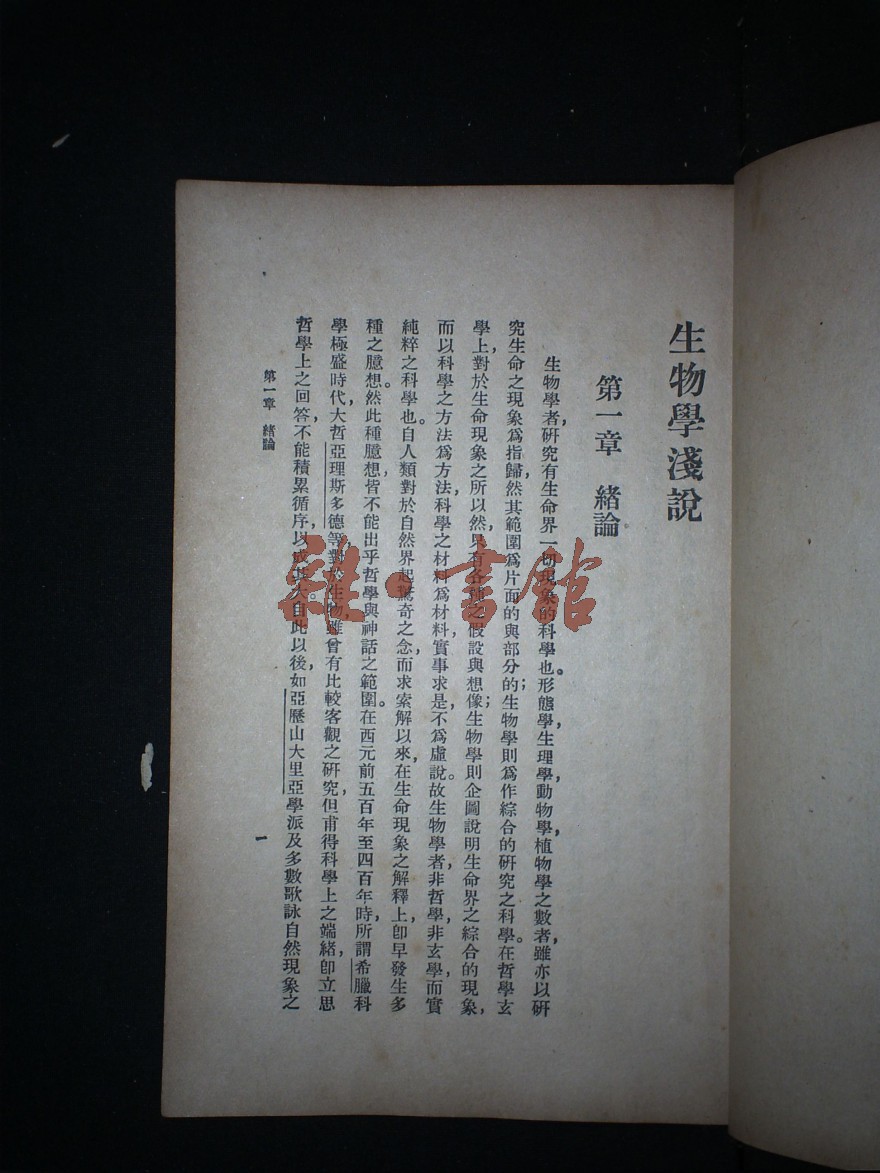 生物學淺說
第一章　緒論
生物學者，研究有生命界一切現象的科學也。形態學，生理學，動物學，植物學之數者，雖亦以研
究生命之現象爲指歸，然其範圍爲片面的與部分的；生物學則爲作綜合的研究之科學。在哲學玄
學上，對於生命現象之所以然，只有各種之假設與想像；生物學則企圖說明生命界之綜合的現象，
而以科學之方法爲方法，科學之材料爲材料，實事求是，不爲虛說。故生物學者，非哲學，非玄學，而實
純粹之科學也。自人類對於自然界起驚奇之念，而求索解以來，在生命現象之解釋上，卽早發生多
種之臆想。然此種臆想，皆不能出乎哲學與神話之範圍。在西元前五百年至四百年時，所謂希臘科
學極盛時代，大哲亞理斯多德等對於生物，雖曾有比較客觀之研究，但甫得科學上之端緒，卽立思
哲學上之回答，不能積累循序，以成其大。自此以後，如亞歷山大里亞學派及多數歌詠自然現象之
第一章　緒論
一
雜·書館